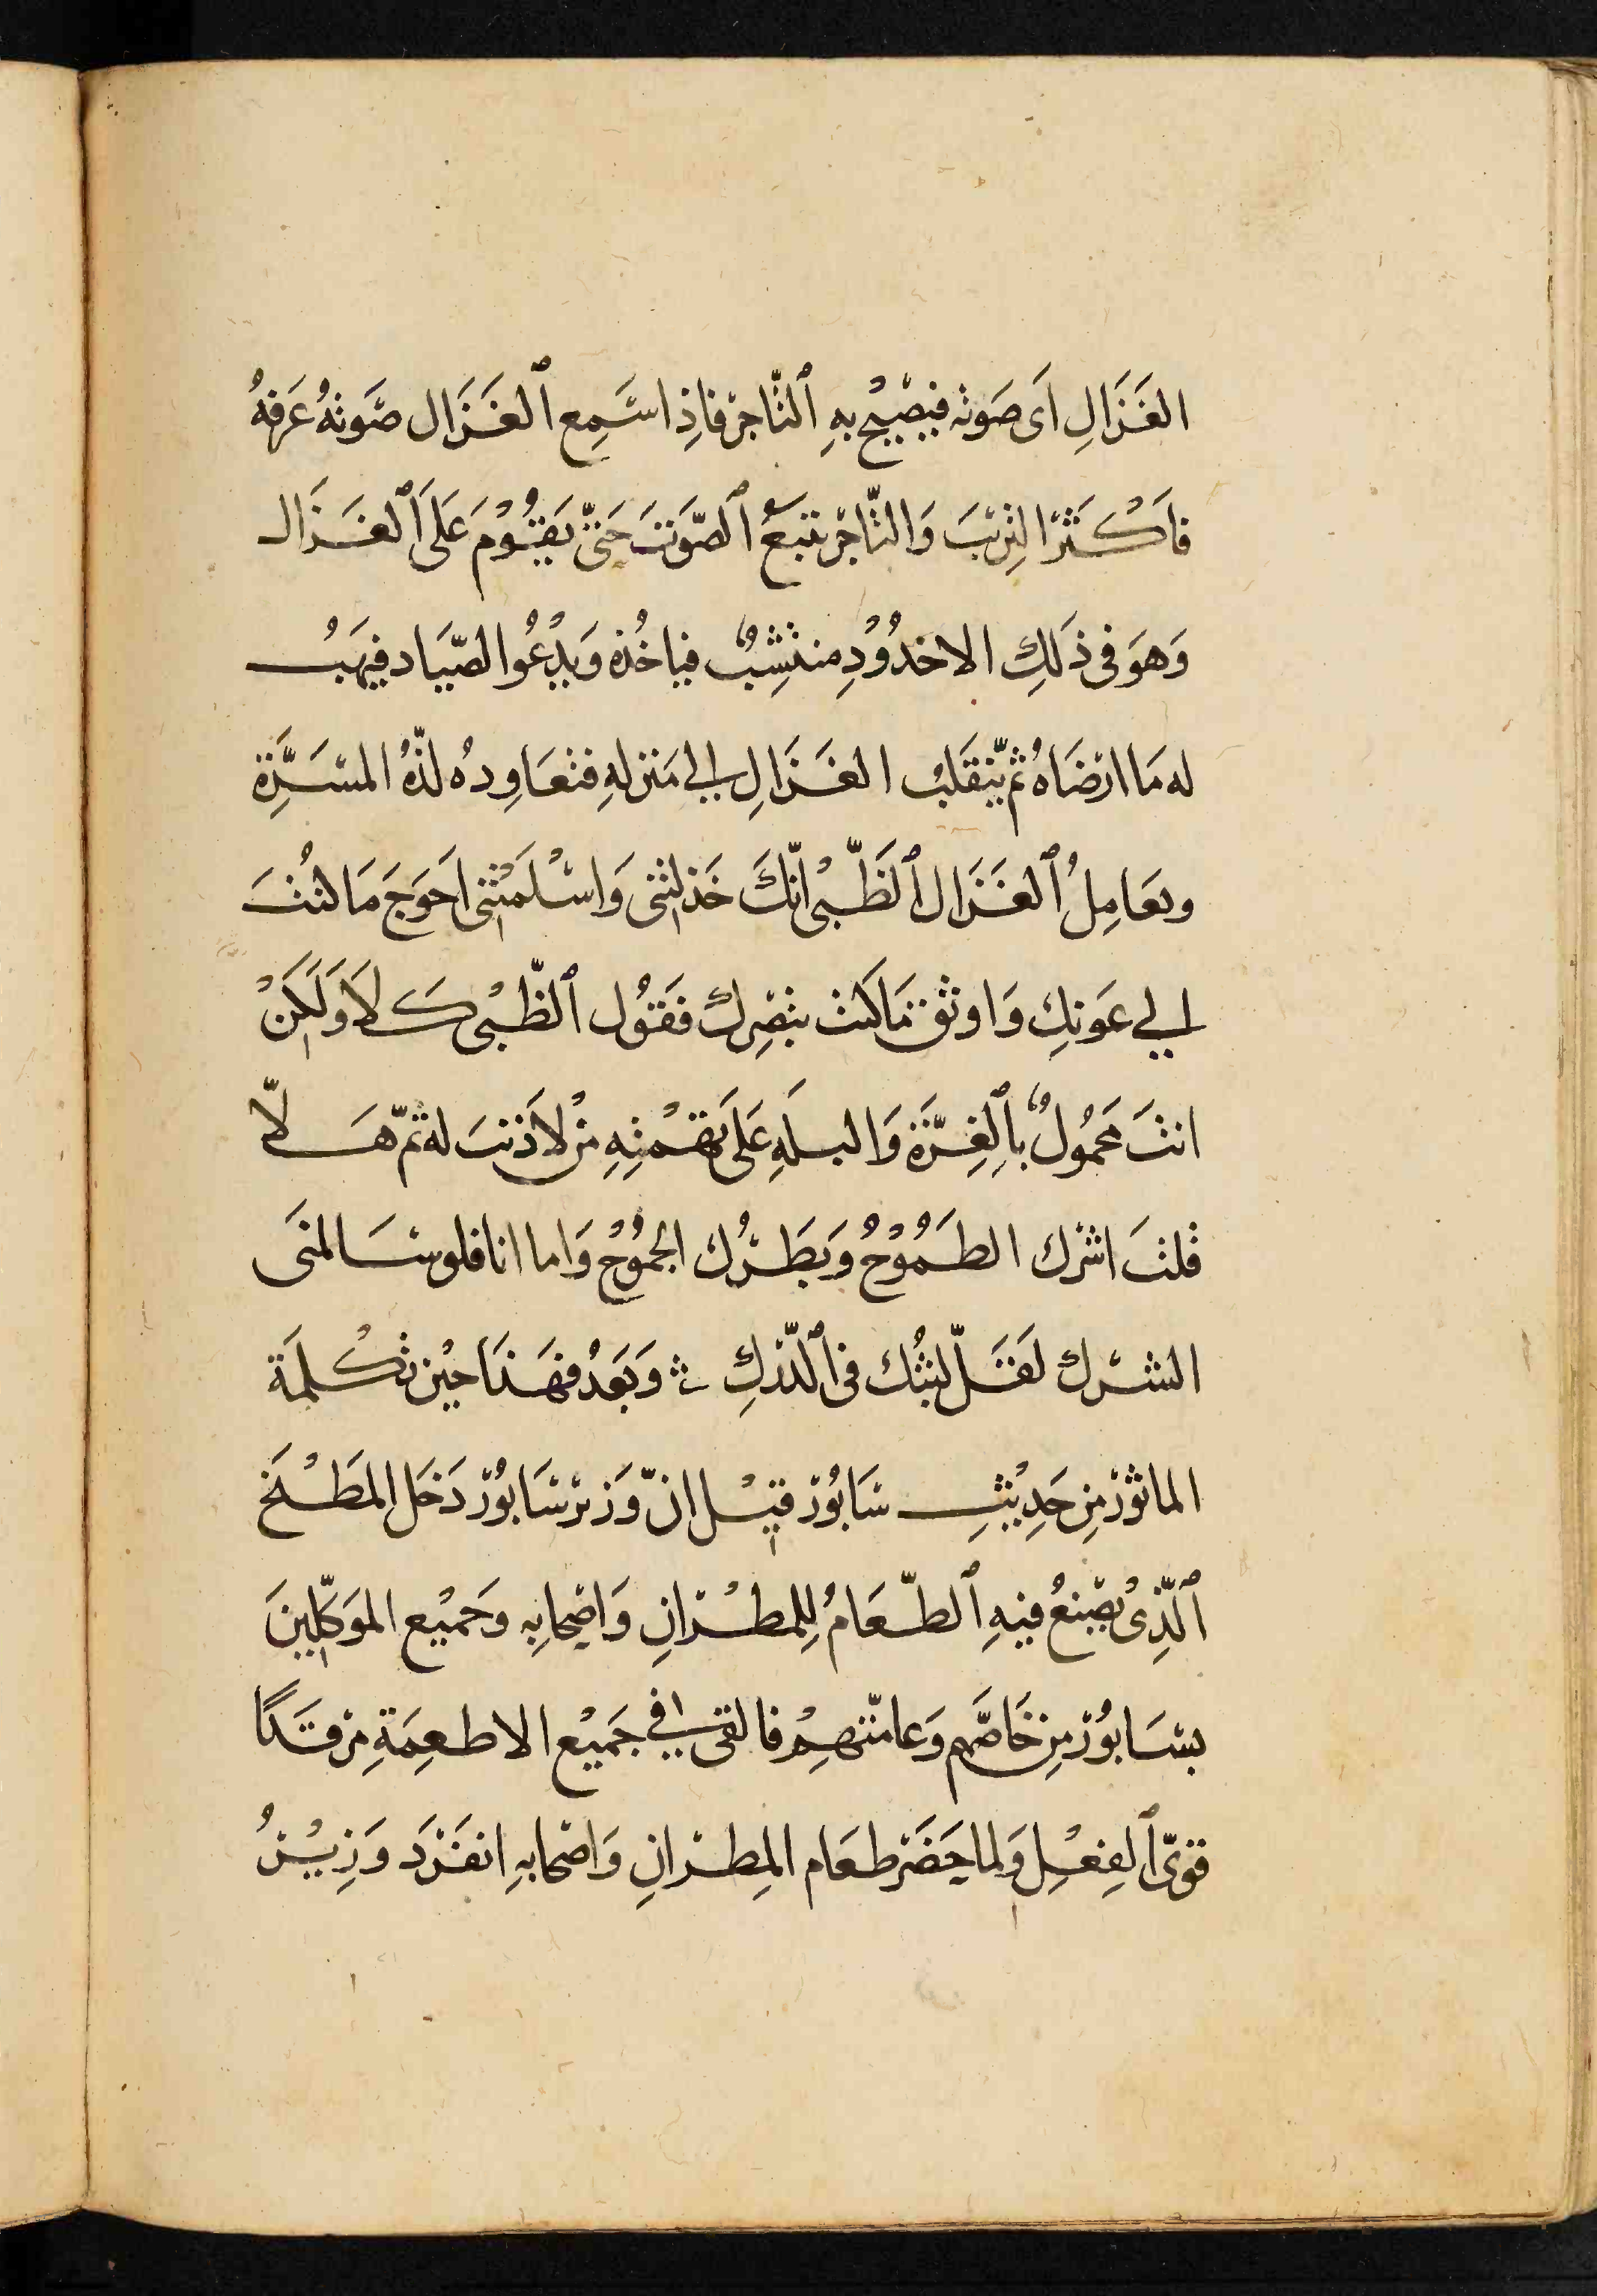 الغَزَالِ اَى صَوته فيصيْح بهِ ٱلتّاجرْ فاذِ اسَمِع ٱلغَزَال صَوتهُ عَرفهُ
فاَكْثَرَ النزيبَ وَالتّاجرْ يتبَعُ ٱلصّوَتَ حَتىّ يَقُوْمَ عَلىَ ٱلغَزَال
وَهوَ فى ذَلكِ الاخدُوْدِ منتشِبٌ فياخُذه وَيدْعُوا الصّيَاد فيهَبُ
له مَا ارْضَاهُ ثم ينقَلبُ الغَزَالِ الي مَنزلهِ فتعَاوِده لذّهُ المسَرَّة
ويعَامِلُ ٱلغَزَال ٱلظَّبْى انّكَ خَذلتنى وَاسْلَمْتنى احَوَجَ مَا كنُتَ
الي عَونكِ وَاوثق مَا كَنت بنصِركْ فَقوُل ٱلظّبْى كَلاَ وَلَكِنْ
انتَ مَحمُولٌ باِلغِرَّة وَالبلَهِ عَلىَ تهمْتِهِ منْ لاَ ذَنبَ له ثمّ هَلاّ
قلتَ اشرَك الطَمُوْحُ وَبطَرُك الجمُوُحْ وَاما انا فلوسَالمنَى
الشرَكْ لقَلّ لبثُك فى ٱلدّركِ ۞ وَبَعَدُ فهَذَا حيْن تكْملَة
الماثورْ مِن حَدِيْثِ سَابُورْ قيْل انّ وَزيرْ سَابوُرْ دَخَل المَطْبخَ
ٱلذِّىْ يصْنعُ فيهِ ٱلطّعَامُ لِلمطْرَانِ وَاصْحابِه وَجَمْيع الموَكلّينَ
بسَابوُرْ مِن خَاصَّهم وَعامتّهِمْ فالقى في جَميْع الاطعِمَةِ مرْقدَاً
قوىّ ٱلفِعْلِ وَلما حَضَرْ طعَام المِطرَانِ وَاصْحابهِ انفَرَد وَزِيْرُ